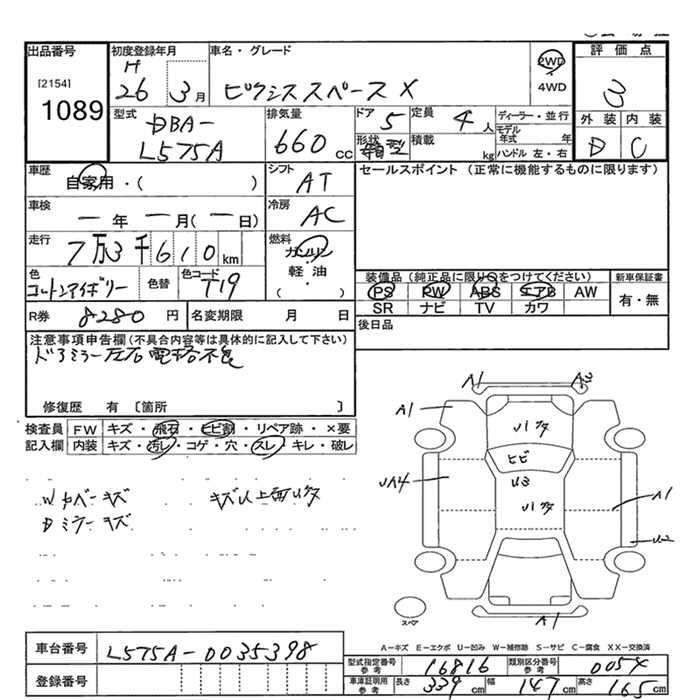 出品番号 初度登録年月 車名・グレード 2WD 評価点
[2154] H ・
1089 26 3月 ピクシススペース X 4WD 3
型式 排気量 ドア 5 定員 4人 ディーラー・並行 外装 内装
DBA- モデル年式 年
L575A 660cc 形状 箱型 積載 kg ハンドル 左・右 D C
車歴 シフト セールスポイント (正常に機能するものに限ります)
自家用・( ) AT
車検 冷房
ー年ー月(ー日) AC
走行 燃料
7万3千610km ガソリン
色 色替 色コード 軽油 装備品 (純正品に限り○をつけてください) 新車保証書
コットンアイボリー T19 ( ) PS PW ABS エアB AW 有・無
R券 8280円 名変期限 月 日 SR ナビ TV カワ
注意事項申告欄(不具合内容等は具体的に記入して下さい) 後日品
ドアミラー左右電格不良
修復歴 有 〔箇所 〕
検査員 FW キズ・飛石・ヒビ割・リペア跡・×要
記入欄 内装 キズ・汚レ・コゲ・穴・スレ・キレ・破レ
A1
A1
U1
ヒビ
U3
UA4 U1 A1
U2
Wカバーキズ キズ
Dミラーキズ
スペア
A1
A-キズ E-エクボ U-凹み W-補修跡 S-サビ C-腐食 XX-交換済
車台番号 L575A-0035398
型式指定番号 参考 16816 類別区分番号 参考 0054
登録番号 車庫証明用 参考 長さ 339cm 幅 147cm 高さ 165cm